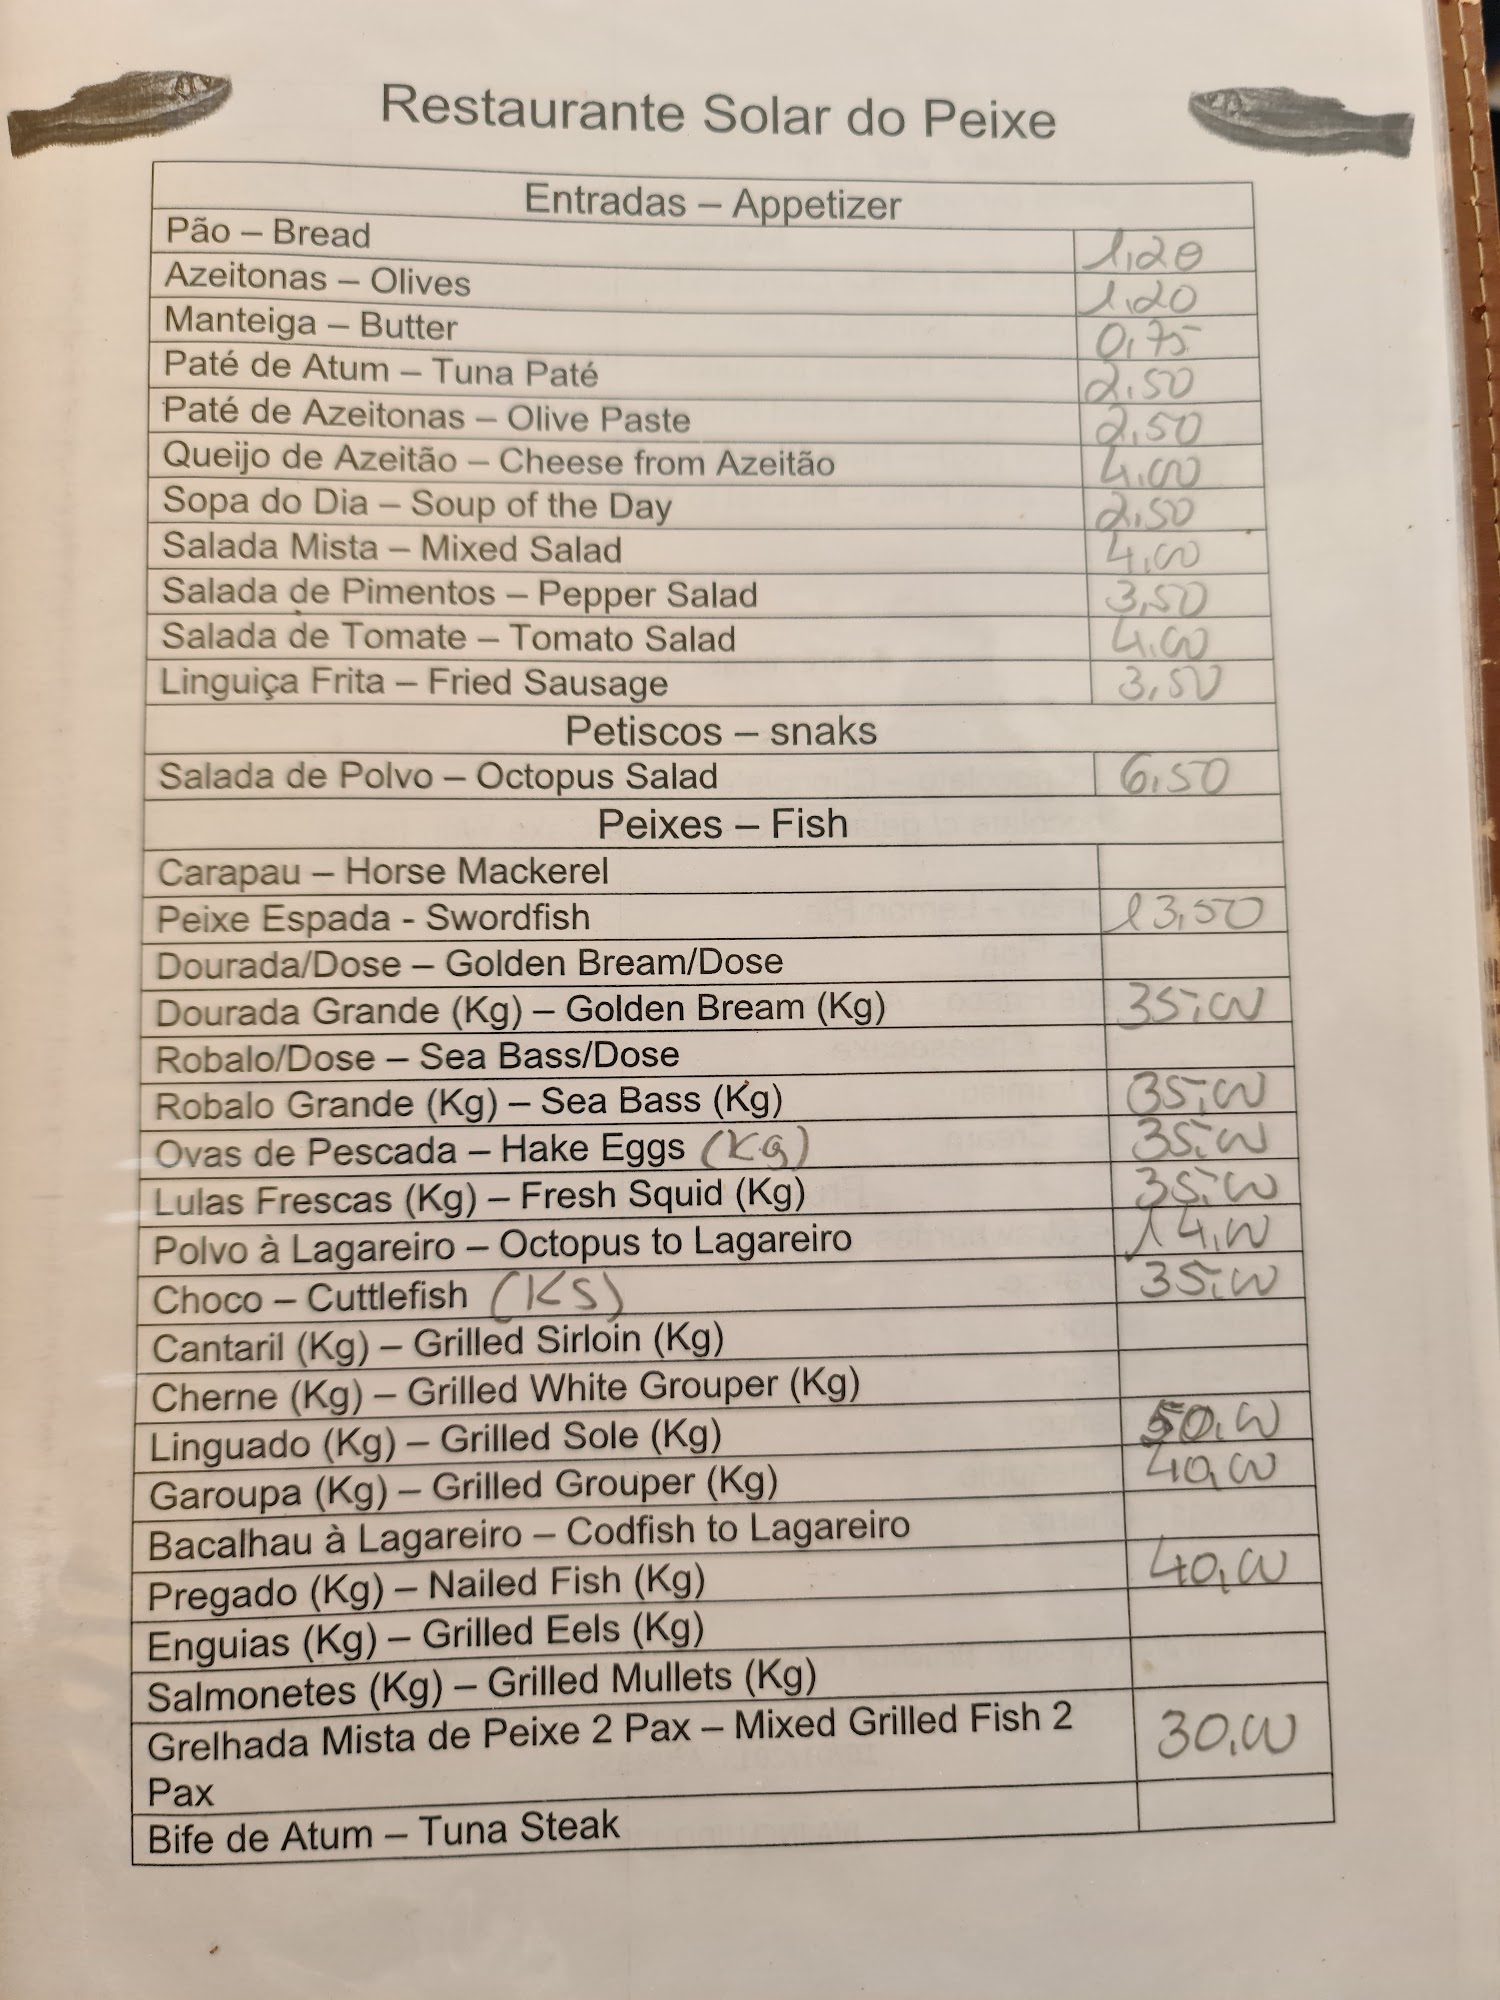 Restaurante Solar do Peixe
Entradas – Appetizer
Pão – Bread 1,20
Azeitonas – Olives 1,20
Manteiga – Butter 0,75
Paté de Atum – Tuna Paté 2,50
Paté de Azeitonas – Olive Paste 2,50
Queijo de Azeitão – Cheese from Azeitão 4,00
Sopa do Dia – Soup of the Day 2,50
Salada Mista – Mixed Salad 4,00
Salada de Pimentos – Pepper Salad 3,50
Salada de Tomate – Tomato Salad 4,00
Linguiça Frita – Fried Sausage 3,50
Petiscos – snaks
Salada de Polvo – Octopus Salad 6,50
Peixes – Fish
Carapau – Horse Mackerel
Peixe Espada - Swordfish 13,50
Dourada/Dose – Golden Bream/Dose
Dourada Grande (Kg) – Golden Bream (Kg) 35,00
Robalo/Dose – Sea Bass/Dose
Robalo Grande (Kg) – Sea Bass (Kg) 35,00
Ovas de Pescada – Hake Eggs (Kg) 35,00
Lulas Frescas (Kg) – Fresh Squid (Kg) 35,00
Polvo à Lagareiro – Octopus to Lagareiro 14,00
Choco – Cuttlefish (Kg) 35,00
Cantaril (Kg) – Grilled Sirloin (Kg)
Cherne (Kg) – Grilled White Grouper (Kg)
Linguado (Kg) – Grilled Sole (Kg) 50,00
Garoupa (Kg) – Grilled Grouper (Kg) 40,00
Bacalhau à Lagareiro – Codfish to Lagareiro
Pregado (Kg) – Nailed Fish (Kg) 40,00
Enguias (Kg) – Grilled Eels (Kg)
Salmonetes (Kg) – Grilled Mullets (Kg)
Grelhada Mista de Peixe 2 Pax – Mixed Grilled Fish 2
Pax 30,00
Bife de Atum – Tuna Steak